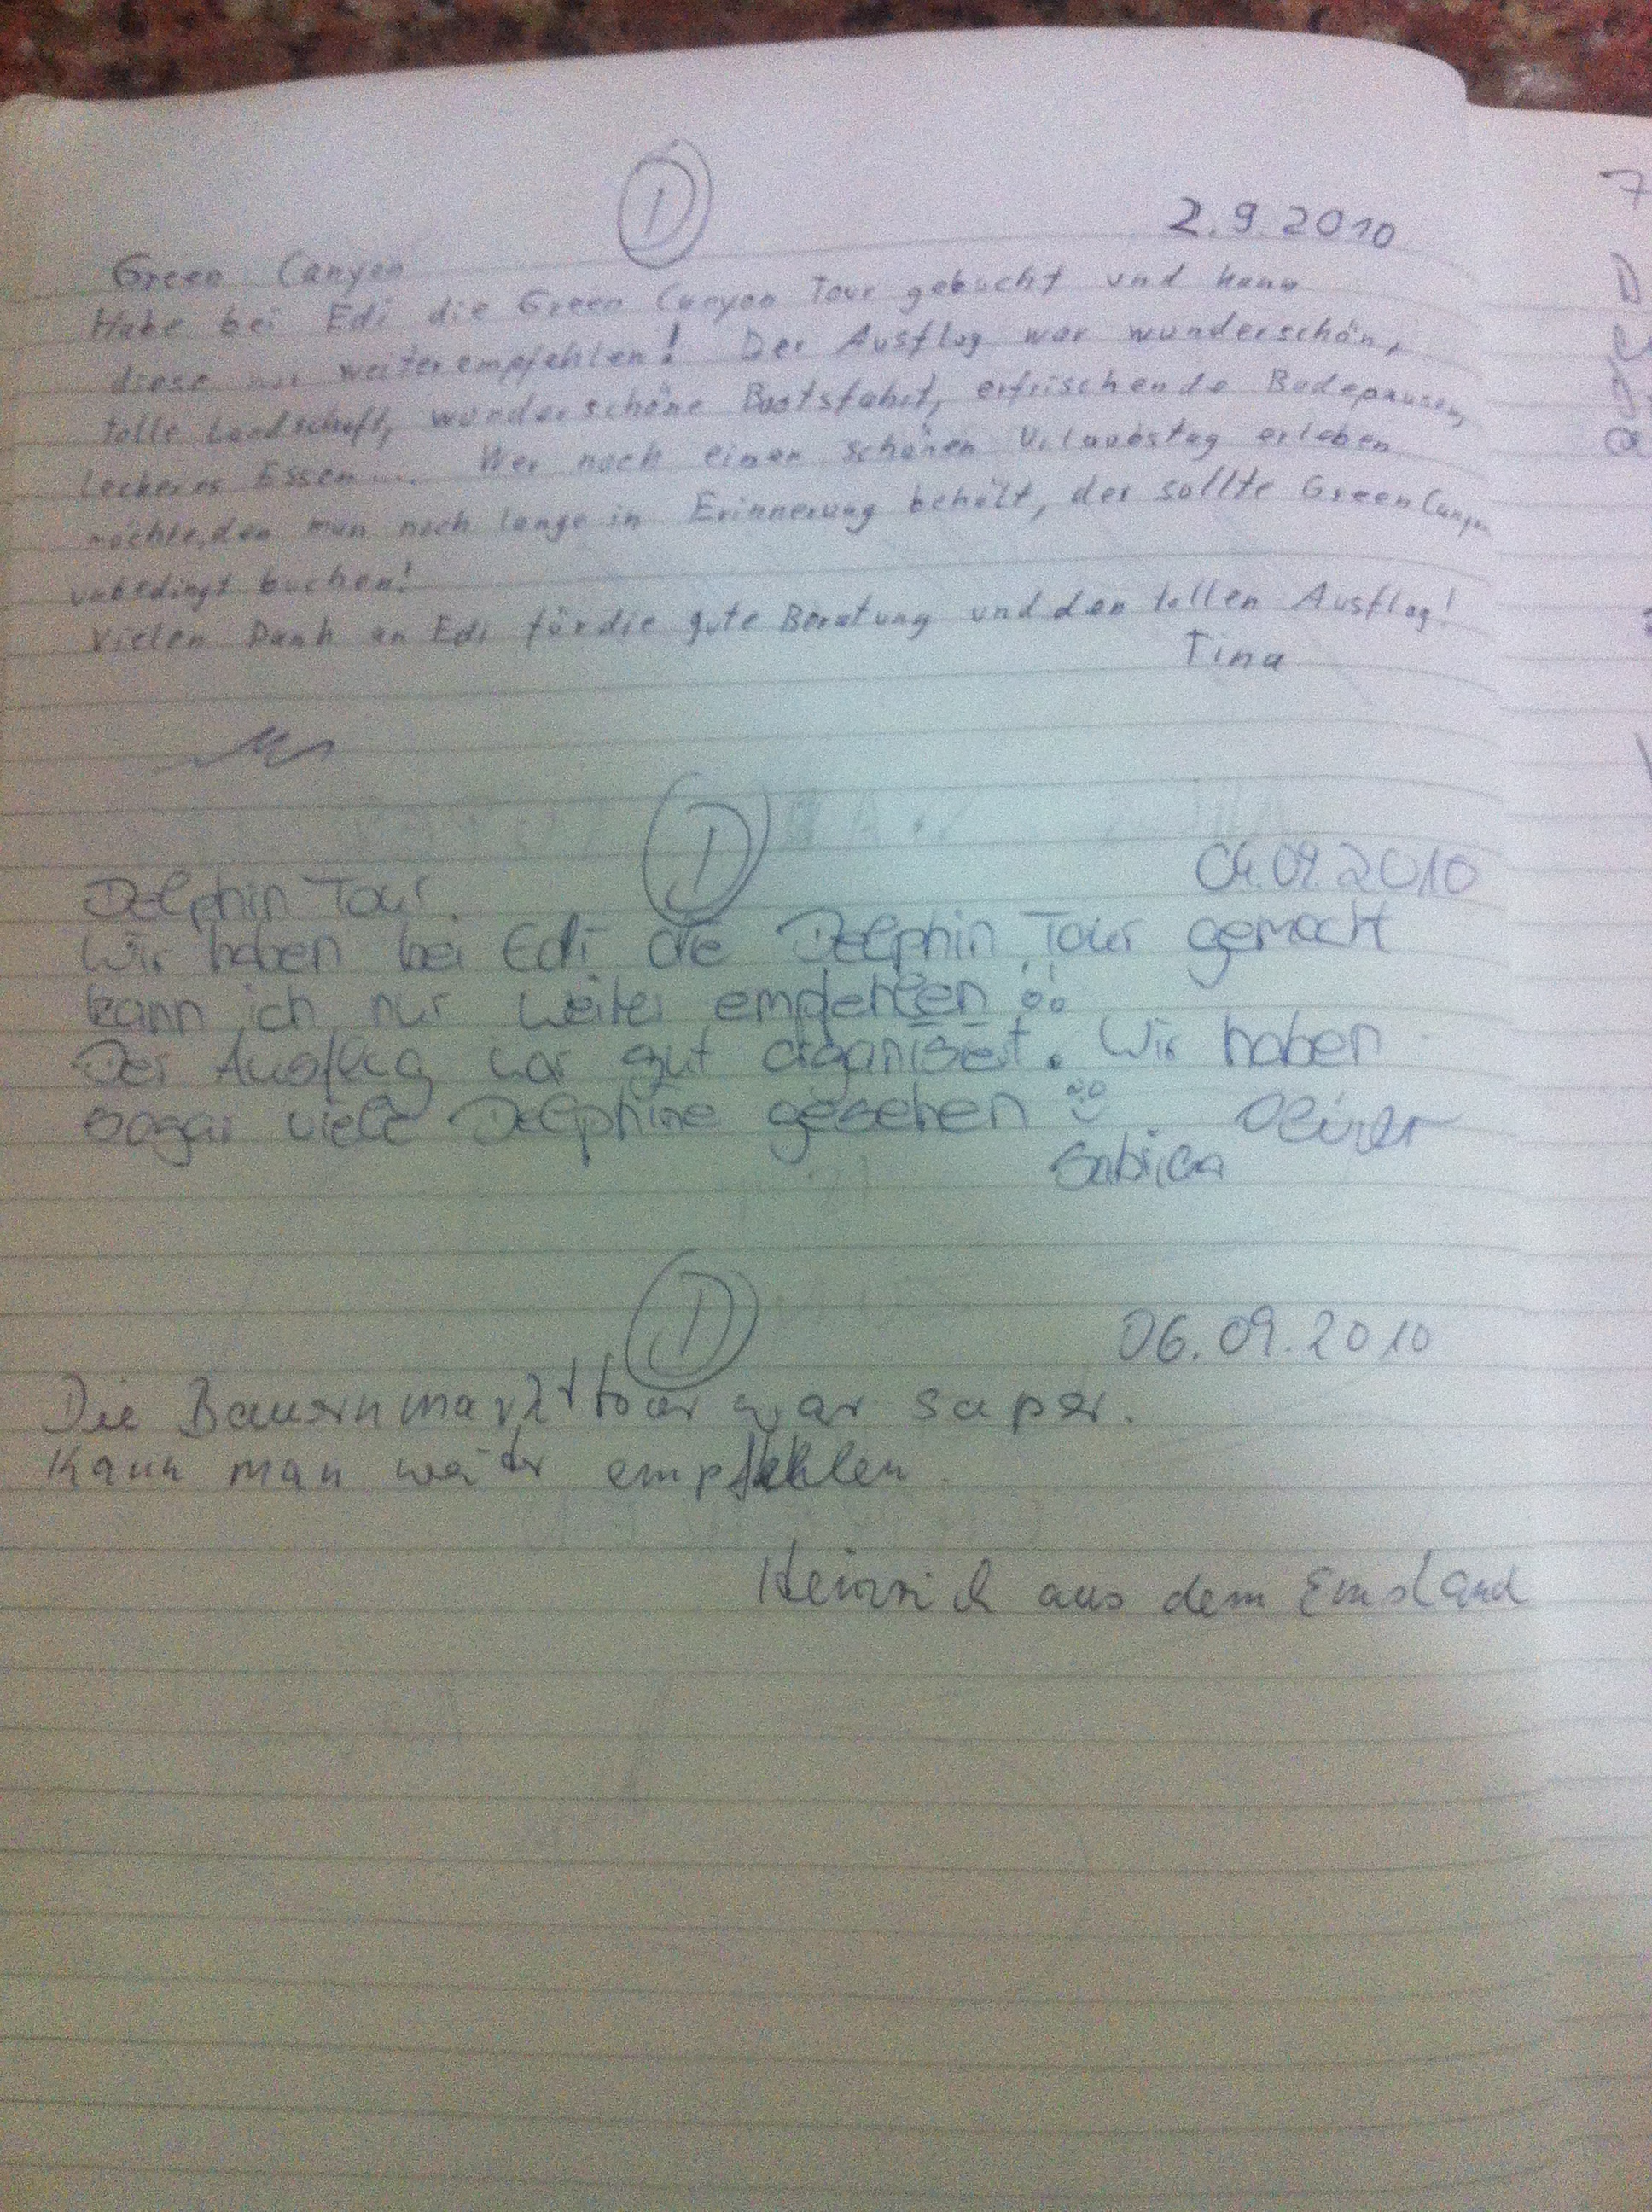 D
2.9.2010
Green Canyon
Habe bei Edi die Green Canyon Tour gebucht und kann
diese nur weiterempfehlen! Der Ausflug war wunderschön,
tolle Landschaft, wunderschöne Bootsfahrt, erfrischende Badepausen,
leckeres Essen.... Wer noch einen schönen Urlaubstag erleben
möchte, den man noch lange in Erinnerung behält, der sollte Green Canyon
unbedingt buchen!
Vielen Dank an Edi für die gute Beratung und den tollen Ausflug!
Tina
D
04.09.2010
Delphin Tour.
Wir haben bei Edi die Delphin Tour gemacht
kann ich nur weiter empfehlen !!
Der Ausflug war gut organisiert. Wir haben
sogar viele Delphine gesehen
Oliver
D
06.09.2010
Die Bauernmarkttour war super.
Kann man weiter empfehlen.
Heinrich aus dem Emsland